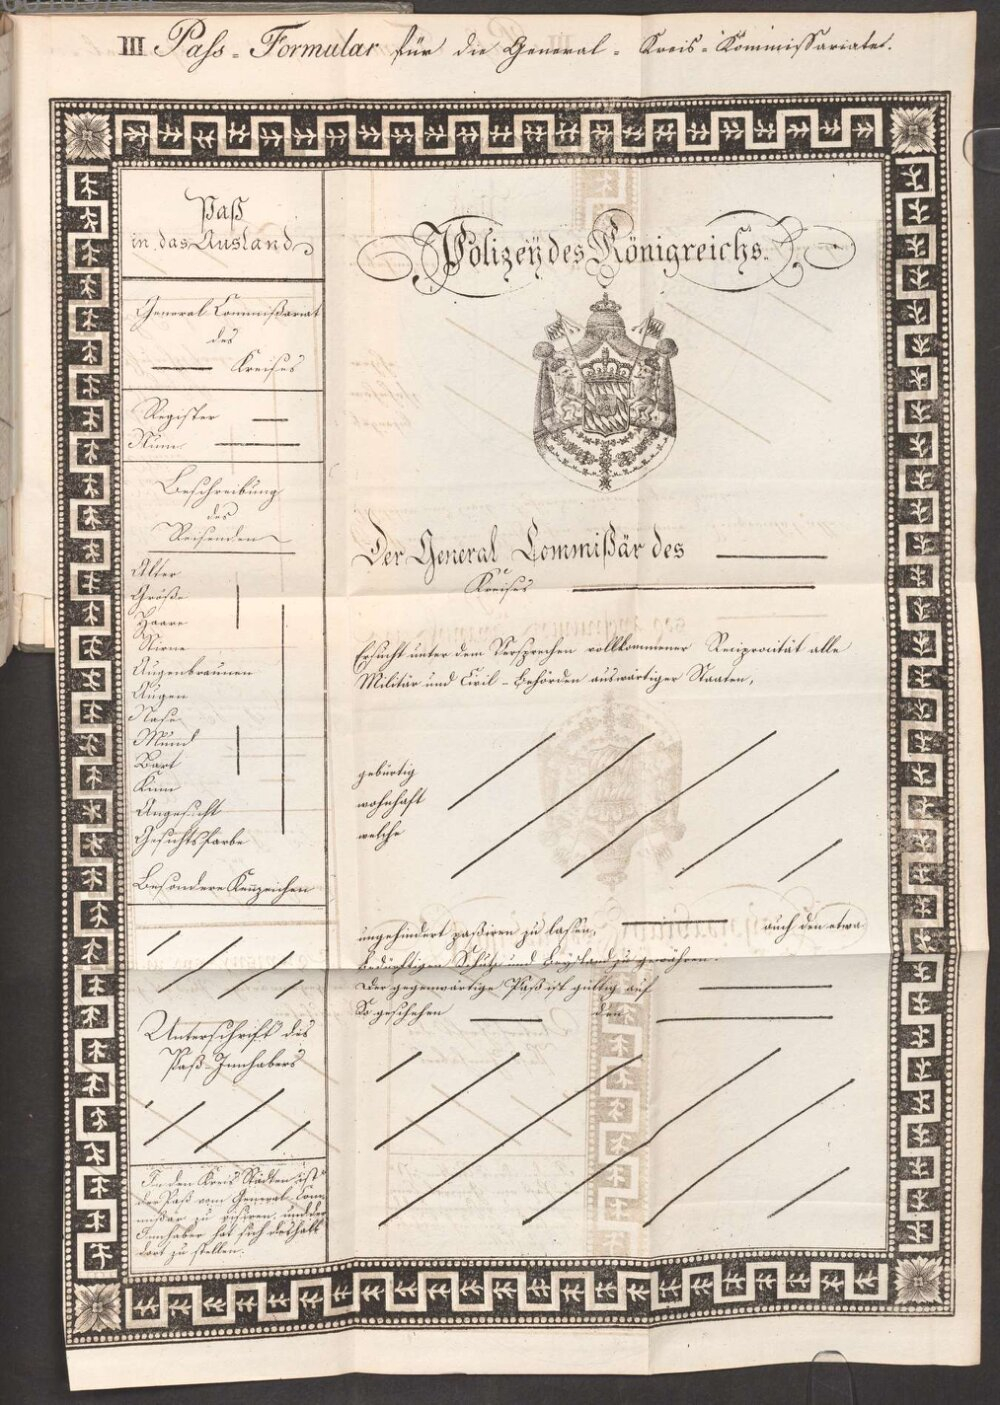 III Pass-Formular für die General-Kreis-Kommissariate.
Paß
in das Ausland
General Commißariat
des
Kreises
Register
Num.
Beschreibung
des
Reisenden
Alter
Größe
Haare
Stirne
Augenbraunen
Augen
Nase
Mund
Bart
Kinn
Angesicht
Gesichts Farbe
Besondere Kenzeichen
Unterschrift des
Paß-Innhabers
In den Kreis Städten ist
der Paß vom General Com-
mißär zu visiren, und der
Innhaber hat sich deshalb
dort zu stellen.
Polizey des Königreichs.
Der General Commißär des
Kreises
Ersucht unter dem Versprechen vollkommener Reciprocität alle
Militär und Civil-Behörden auswärtiger Staaten,
gebürtig
wohnhaft
welche
ungehindert paßiren zu lassen, auch den etwa
bedürftigen Schutz und Beystand zu gewähren.
Der gegenwärtige Paß ist gültig auf
So geschehen den